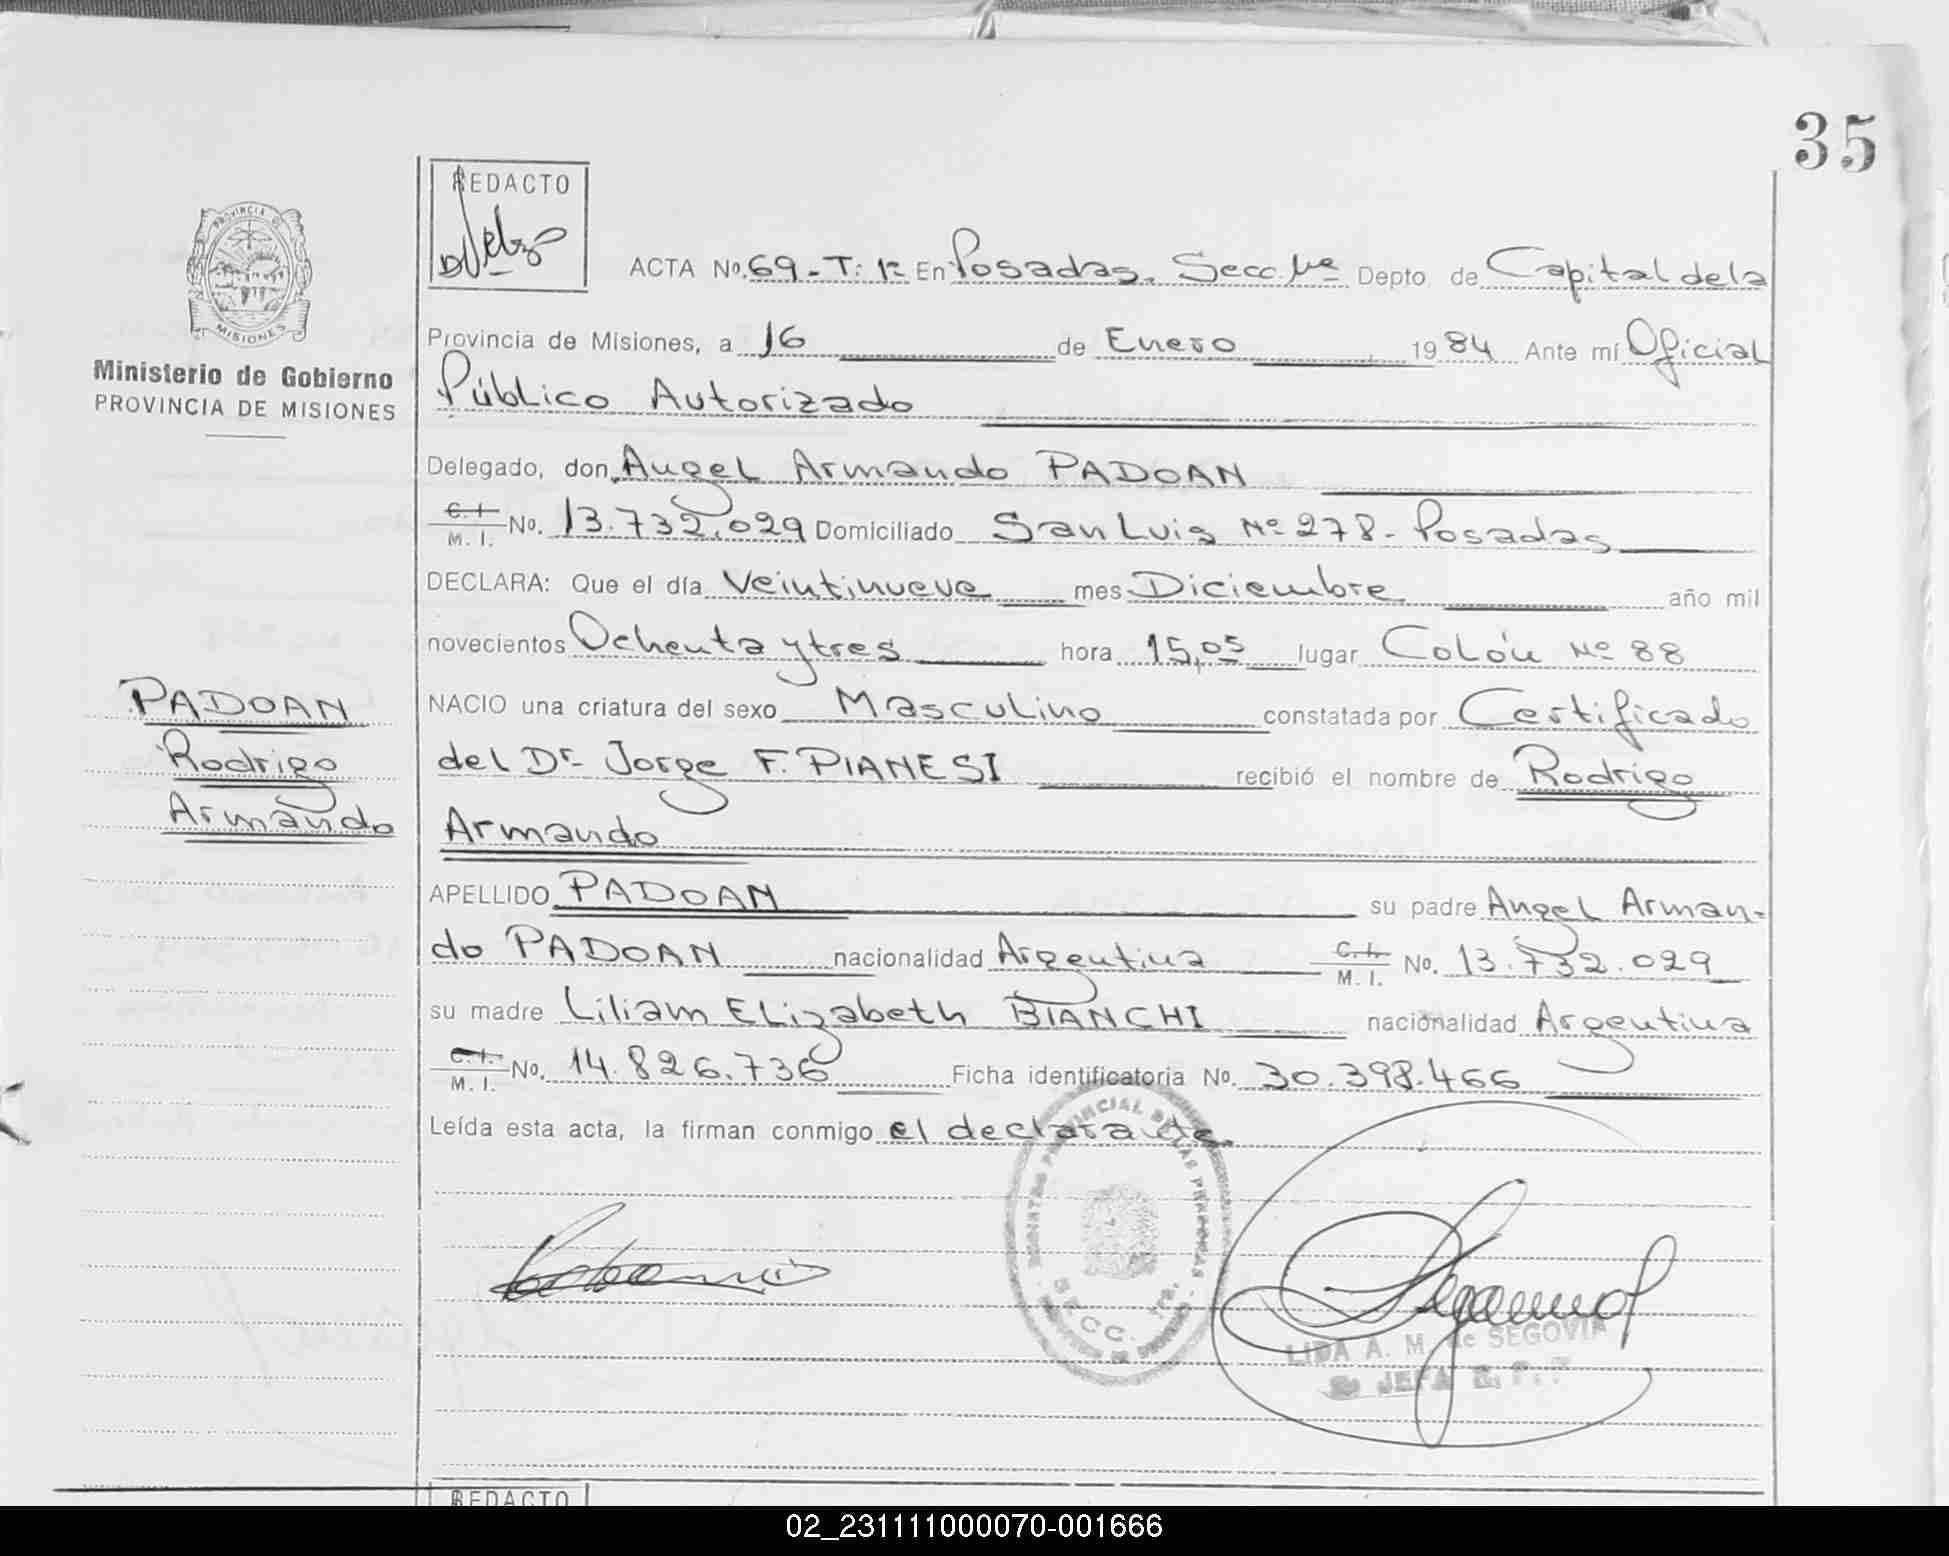 35
REDACTO
PROVINCIA DE
MISIONES
Ministerio de Gobierno
PROVINCIA DE MISIONES
ACTA No. 69.- T: 1º En Posadas, Secc. 1ra Depto. de Capital de la
Provincia de Misiones, a 16 de Enero 1984 Ante mí Oficial
Público Autorizado
Delegado, don Angel Armando PADOAN
C. I. / M. I. No. 13.732.029 Domiciliado San Luis Nº 278.- Posadas
DECLARA: Que el día Veintinueve mes Diciembre año mil
novecientos Ochenta y tres hora 15,05 lugar Colón Nº 88
NACIO una criatura del sexo Masculino constatada por Certificado
del Dr. Jorge F. PIANESI recibió el nombre de Rodrigo
Armando
PADOAN
Rodrigo
Armando
APELLIDO PADOAN su padre Angel Arman-
do PADOAN nacionalidad Argentina C. I. / M. I. No. 13.732.029
su madre Liliam Elizabeth BIANCHI nacionalidad Argentina
C. I. / M. I. No. 14.826.736 Ficha identificatoria No. 30.398.466
Leída esta acta, la firman conmigo el declarante.
PROVINCIAL DE LAS PERSONAS
SECC. 1ra.
LIDA A. M. de SEGOVIA
JEFA
REDACTO
02_231111000070-001666